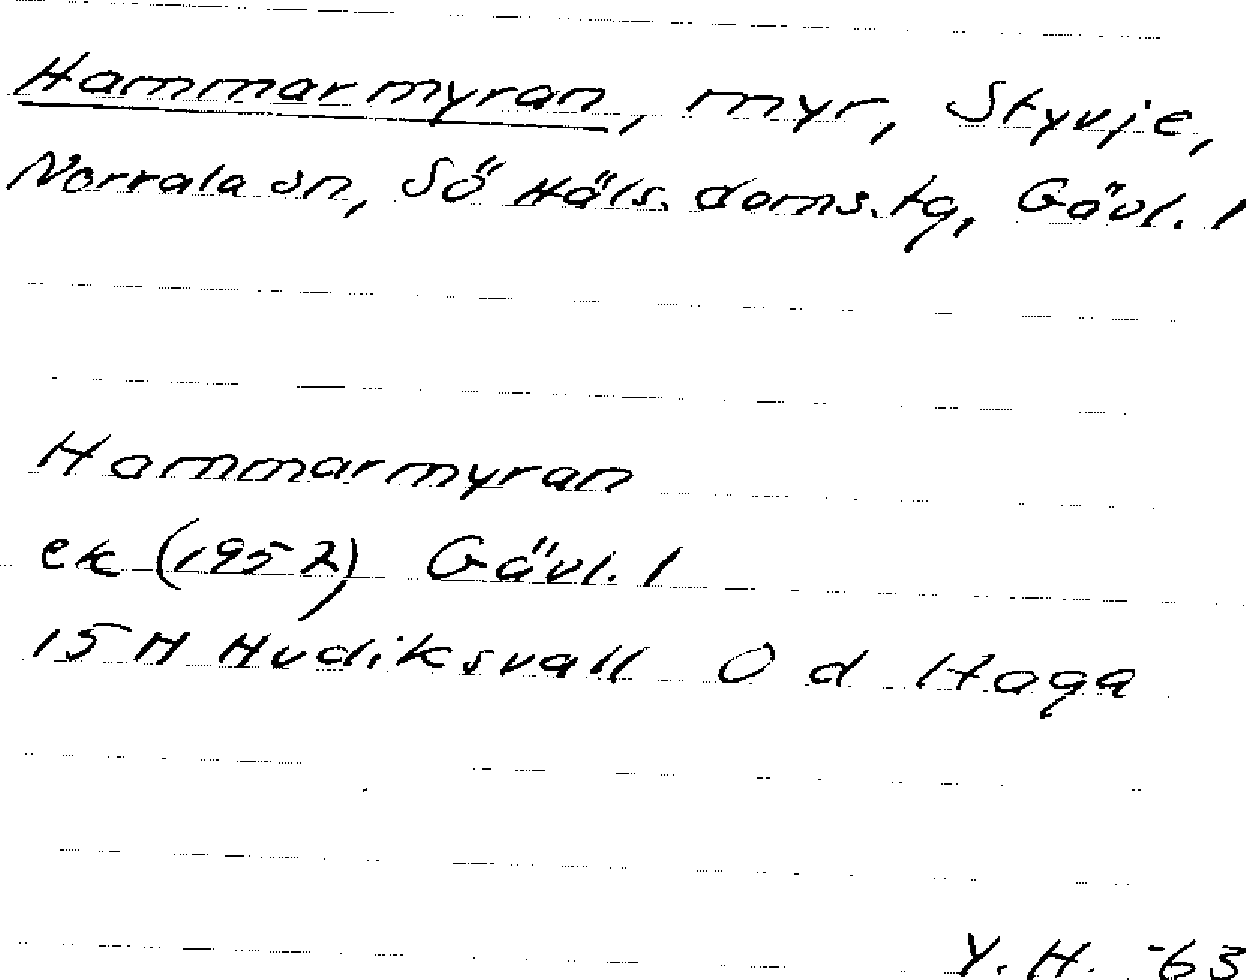 Hammarmyran, myr, Styvje,
Norrala sn, Sö Häls. doms.tg, Gävl. l
Hammarmyran
ek (1952) Gävl. l
15 H Hudiksvall O d Haga
Y. H. -63